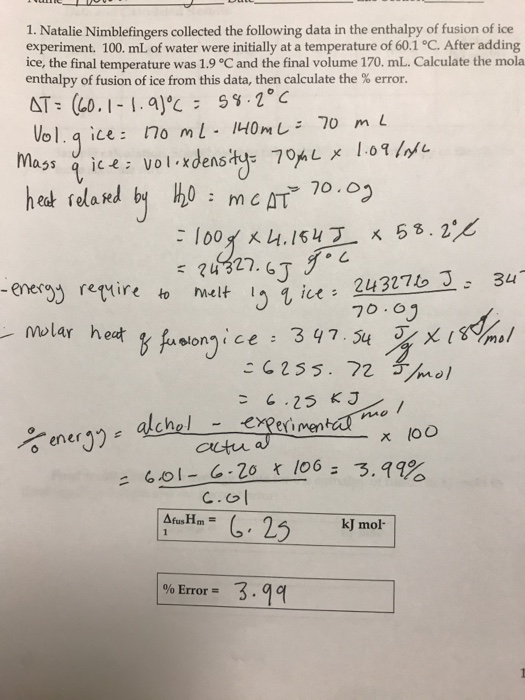 1. Natalie Nimblefingers collected the following data in the enthalpy of fusion of ice
experiment. 100. mL of water were initially at a temperature of 60.1 °C. After adding
ice, the final temperature was 1.9 °C and the final volume 170. mL. Calculate the mola
enthalpy of fusion of ice from this data, then calculate the % error.
ΔT = (60.1 - 1.9)°C = 58.2°C
Vol. g ice = 170 mL - 140mL = 70 mL
Mass g ice = vol. x density = 70mL x 1.0g/mL
= 70.0g
heat relased by H2O = mCΔT
= 100g x 4.184 J/g°C x 58.2°C
= 24327.6J
- energy require to melt 1g g ice = 24327.6 J / 70.0g = 34
- molar heat g fusiongice = 347.54 J/g x 18g/mol
= 6255.72 J/mol
= 6.25 KJ/mol
% energy = alchol - experimental / actual x 100
= 6.01 - 6.20 x 100 / 6.01 = 3.99%
ΔfusHm = 6.25 kJ mol-
1
% Error = 3.99
1